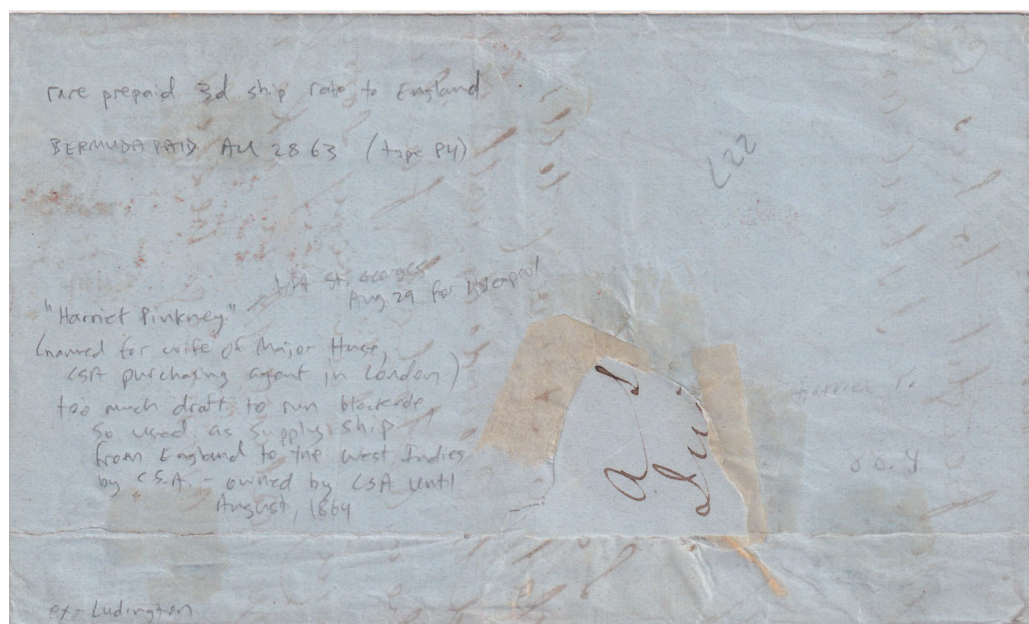 rare prepaid 3d ship rate to England
BERMUDA PAID AU 28 63 (type P4)
L22
left St. Georges
Aug 29 for Liverpool
"Harriet Pinkney"
(named for wife of Major Huse,
CSA purchasing agent in London)
too much draft to run blockade,
so used as supply ship
from England to the West Indies
by C.S.A. - owned by CSA until
August, 1864
Harriet P.
ex-Ludington